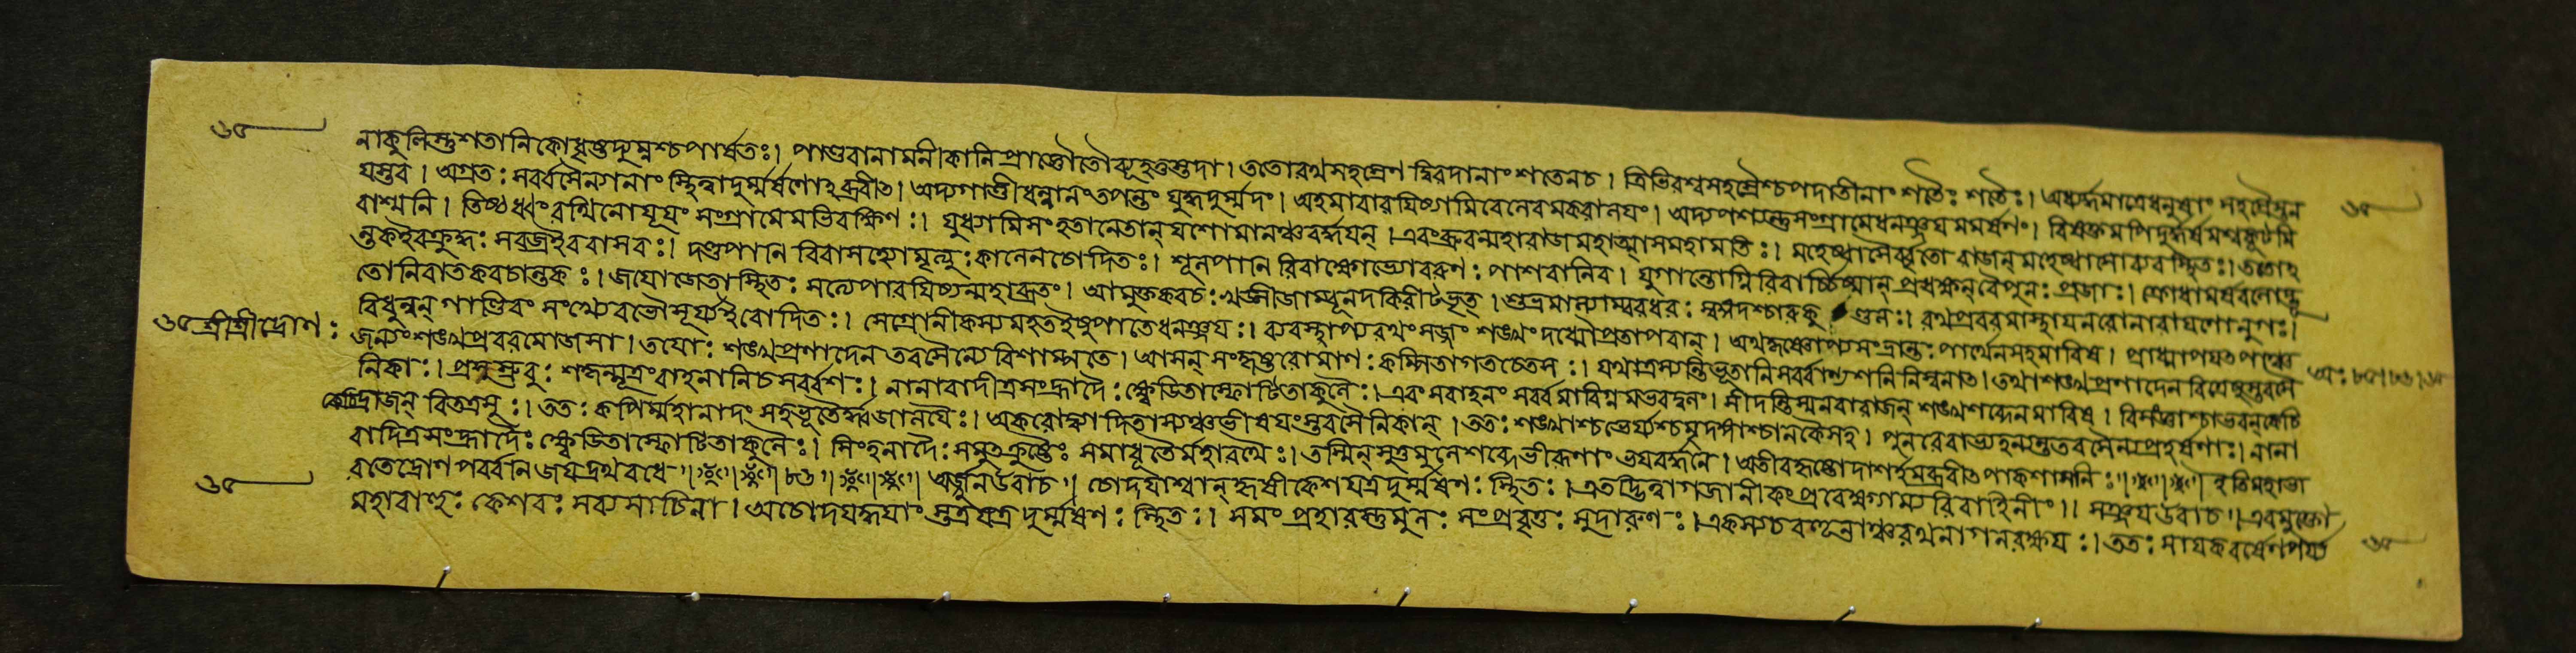 ৬৫
নাকুলিস্তুশতানিকোধৃষ্টদ্যুম্নশ্চপার্ষতঃ। পাণ্ডবানামনীকানিপ্রাজ্ঞৌতৌব্যূহতুস্তদা। ততোরথসহস্রেণ দ্বিরদানাং শতেনচ। ত্রিভিরশ্বসহস্রৈশ্চপদাতীনাং শতৈঃ শতৈঃ। অধ্যর্দ্ধমাত্রেধনুষাং সহস্রৈস্তন
যস্তব। অগ্রতঃ সর্বসৈন্যানাং স্থিত্বাদুর্ম্মর্ষণোব্রবীৎ। অদ্যগাণ্ডীবধন্বানংতপন্তং যুদ্ধদুর্ম্মদং। অহমাবারয়িষ্যামিবেলেবমকরালয়ং। অদ্যপশ্যন্তুসংগ্রামেধনঞ্জয়মমর্ষণং। বিষক্তময়িদুর্দ্ধর্ষমশ্মকূটমি
বাশ্মনি। তিষ্ঠধ্বংরথিনোযূয়ং সংগ্রামমভিকাঙ্ক্ষিণঃ। যুধ্যামিসংহতানেতান্ যশোমানঞ্চবর্দ্ধয়ন্। এবংব্রুবন্মহারাজমহাত্মাসমহামতিঃ। মহেষ্বাসৈর্বৃতো রাজন্ মহেষ্বাসোব্যবস্থিতঃ। ততোহ
ন্তকইবক্রুদ্ধঃ সবজ্রইববাসবঃ। দণ্ডপাণি রিবাসহ্যোমৃত্যুঃ কালেনচোদিতঃ। শূলপাণি রিবাক্ষোভ্যোবরুণঃ পাশবানিব। যুগান্তোগ্নিরিবার্চ্চিষ্মান্ প্রধক্ষ্যন্ বৈপুনঃ প্রজাঃ। ক্রোধামর্ষবলোদ্ধূ
তোনিবাতকবচান্তকঃ। জয়োজেতাস্থিতঃ সত্যেপারয়িষ্যন্মহাব্রতং। আমুক্তকবচঃ খড়্গীজাম্বূনদকিরীটভৃৎ। শুভ্রমাল্যাম্বরধরঃ স্বঙ্গদশ্চারুকুণ্ডলঃ। রথপ্রবরমাস্থায়নরোনারায়ণোনুগঃ।
৬৫ শ্রীশ্রীদ্রোণঃ
বিধুন্বন্ গাণ্ডিবং সংখ্যেবভৌসূর্য্যইবোদিতঃ। সোগ্রানীকস্যমহতইষুপাতেধনঞ্জয়ঃ। ব্যবস্থাপ্যরথং সজ্জং শঙ্খং দধ্মৌপ্রতাপবান্। অথকৃষ্ণোপ্যসংভ্রান্তঃ পার্থেনসহমারিষ। প্রাধ্মাপয়ৎপাঞ্চ
জন্যংশঙ্খপ্রবরমোজসা। তয়োঃ শঙ্খপ্রণাদেন তবসৈন্যেবিশাম্পতে। আসন্ সংহৃষ্টরোমাণঃ কম্পিতাগতচেতসঃ। যথাত্রস্যন্তিভূতানিসর্বাণ্যশনিনিস্বনাৎ। তথাশঙ্খপ্রণাদেন বিত্রেসুস্তবসৈ
নিকাঃ। প্রসুস্রুবুঃ শকৃন্মূত্রংবাহনানিচসর্বশঃ। নানাবাদীত্রসংহ্রাদৈঃ ক্ষ্বেডিতাস্ফোটিতাকুলৈঃ। এবং সবাহনং সর্বমাবিগ্নমভবদ্বলং। সীদন্তিস্মনরারাজন্ শঙ্খশব্দেনমারিষ। বিসংজ্ঞাশ্চাভবন্কেচি
কেচিদ্রাজন্ বিতত্রসুঃ। ততঃ কপির্ম্মহানাদং সহভূতৈর্ধ্বজালয়ৈঃ। অকরোদ্ব্যাদিতাস্যশ্চভীষয়ংস্তবসৈনিকান্। ততঃ শঙ্খাশ্চভের্য্যশ্চমৃদঙ্গাশ্চানকৈসহ। পুনরেবাভ্যহন্যন্ততবসৈন্যপ্রহর্ষণাঃ। নানা
বাদিত্রসংহ্রাদৈঃ ক্ষ্বেডিতাস্ফোটিতাকুলৈঃ। সিংহনাদৈঃ সমুৎক্রুষ্টৈঃ সমাধূতৈর্মহারথৈঃ। তস্মিন্ সুতুমুলেশব্দেভীরূণাং ভয়বর্দ্ধনে। অতীবহৃষ্টোদাশার্হমব্রবীৎপাকশাসনিঃ। ইতিমহাভা
রতেদ্রোণপর্বনিজয়দ্রথবধে ৮৬ অর্জ্জুনউবাচ। চোদয়াশ্বান্ হৃষীকেশযত্রদুর্ম্মর্ষণঃ স্থিতঃ। এতদ্ভিত্বাগজানীকংপ্রবেক্ষ্যাম্যরিবাহিনীং।। সঞ্জয়উবাচ। এবমুক্তো
মহাবাহুঃ কেশবঃ সব্যসাচিনা। অচোদয়দ্ধয়াংস্তত্রযত্রদুর্ম্মর্ষণঃ স্থিতঃ। সমং প্রহারস্তুমুলঃ সংপ্রবৃত্তঃ সুদারুণঃ। একস্যচবহূনাঞ্চরথনাগনরক্ষয়ঃ। ততঃ সায়কবর্ষেণপর্য্য
৬৫